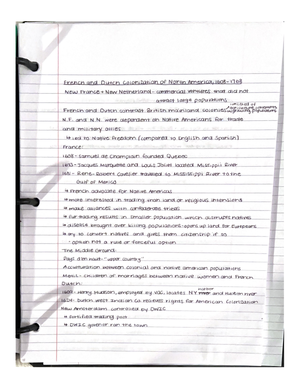 French and Dutch Colonization of North America, 1608-1763
New France + New Netherland - commercial ventures that did not
attract large populations
French and Dutch contrast British mainland colonies w/
growing populations
N.F. and N.N. were dependent on Native Americans for trade
and military allies
→ led to Native freedom (compared to English and Spanish)
France:
1608 - Samuel de Champlain founded Quebec
Jacques Marquette and Louis Joliet located Mississippi River
Rene-Robert Cavelier traveled to Mississippi River to the
Gulf of Mexico
→ French advocate for Native Americans
→ more interested in trading than land or religious intensions
→ make alliances with confederate tribes
→ fur trading results in smaller population which attracts natives
→ disease brought over killing populations opens up land for Europeans
→ try to convert natives and gives them citizenship if so
- option not a rule or forceful option
The Middle Ground:
Pays d'en haut - "upper country"
Acculturation between colonial and native American populations
Metis - children of marriages between native women and French
Dutch:
1609 - Henry Hudson, employed by VOC, locates NY and Hudson river
harbor
Dutch West Indian Co receives rights for American Colonization
New Amsterdam, controlled by DWIC
→ fortified trading post
→ DWIC governor ran the town